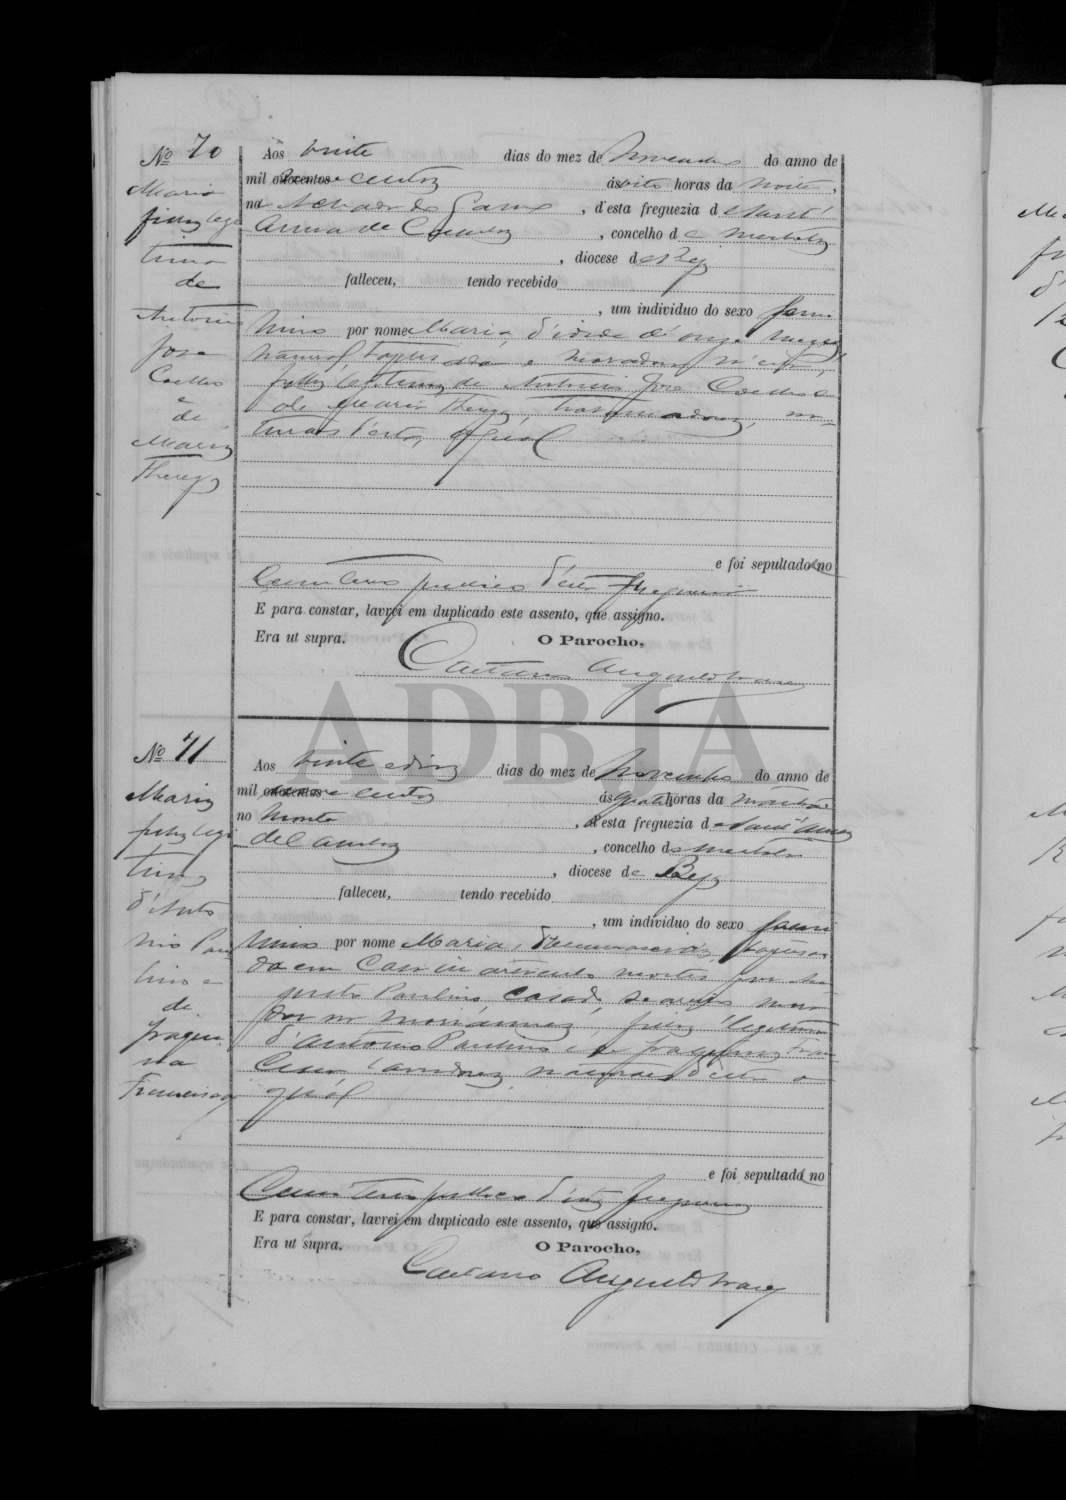 Nº 70
Maria
filha legi
tima
de
Antonio
Jose
Coelho
e
de
Maria
Thereza
Aos vinte dias do mez de Novembro do anno de
mil oitocentos nove centos ás oito horas da noite,
na Achada do Gamo, d'esta freguezia d e Sant'
Anna de Cambas, concelho d e Mertola
, diocese d e Beja
falleceu, tendo recebido
, um individuo do sexo femi
nino por nome Maria, d'idade d' onze mezes
natural baptisada e moradora n'esta,
filha legitima de Antonio Jose Coelho e
de Maria Thereza, trabalhadores, na
turaes d'esta, a qual
e foi sepultado no
Cemiterio publico d'esta freguezia
E para constar, lavrei em duplicado este assento, que assigno.
Era ut supra. O Parocho,
Caetano Augusto
ADBJA
Nº 71
Maria
filha legi
tima
d'Anto
nio Pau
lino e
de
Joaqui
na
Francisca
Aos vinte e dois dias do mez de Novembro do anno de
mil oitocentos nove centos ás quatro horas da manhã
no Monte, d'esta freguezia d e Sant'Anna
de Cambas, concelho d e Mertola
, diocese d e Beja
falleceu, tendo recebido
, um individuo do sexo femi
nino por nome Maria, baptisa
da em Casa in articulo mortis por
Paulino, casado, mora
dor no filha legitima
d'Antonio Paulino e de Joaquina Fran
cisca naturaes d'esta a
qual
e foi sepultado no
Cemiterio publico d'esta freguezia
E para constar, lavrei em duplicado este assento, que assigno.
Era ut supra. O Parocho,
Caetano Augusto